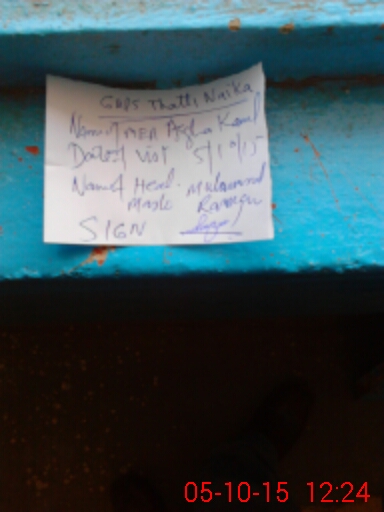 GBPS Thatti Naika
Name of MEA Agha Kamal
Date of Visit 5/10/15
Name of Head.
Maste Muhammad
SIGN
05-10-15 12:24